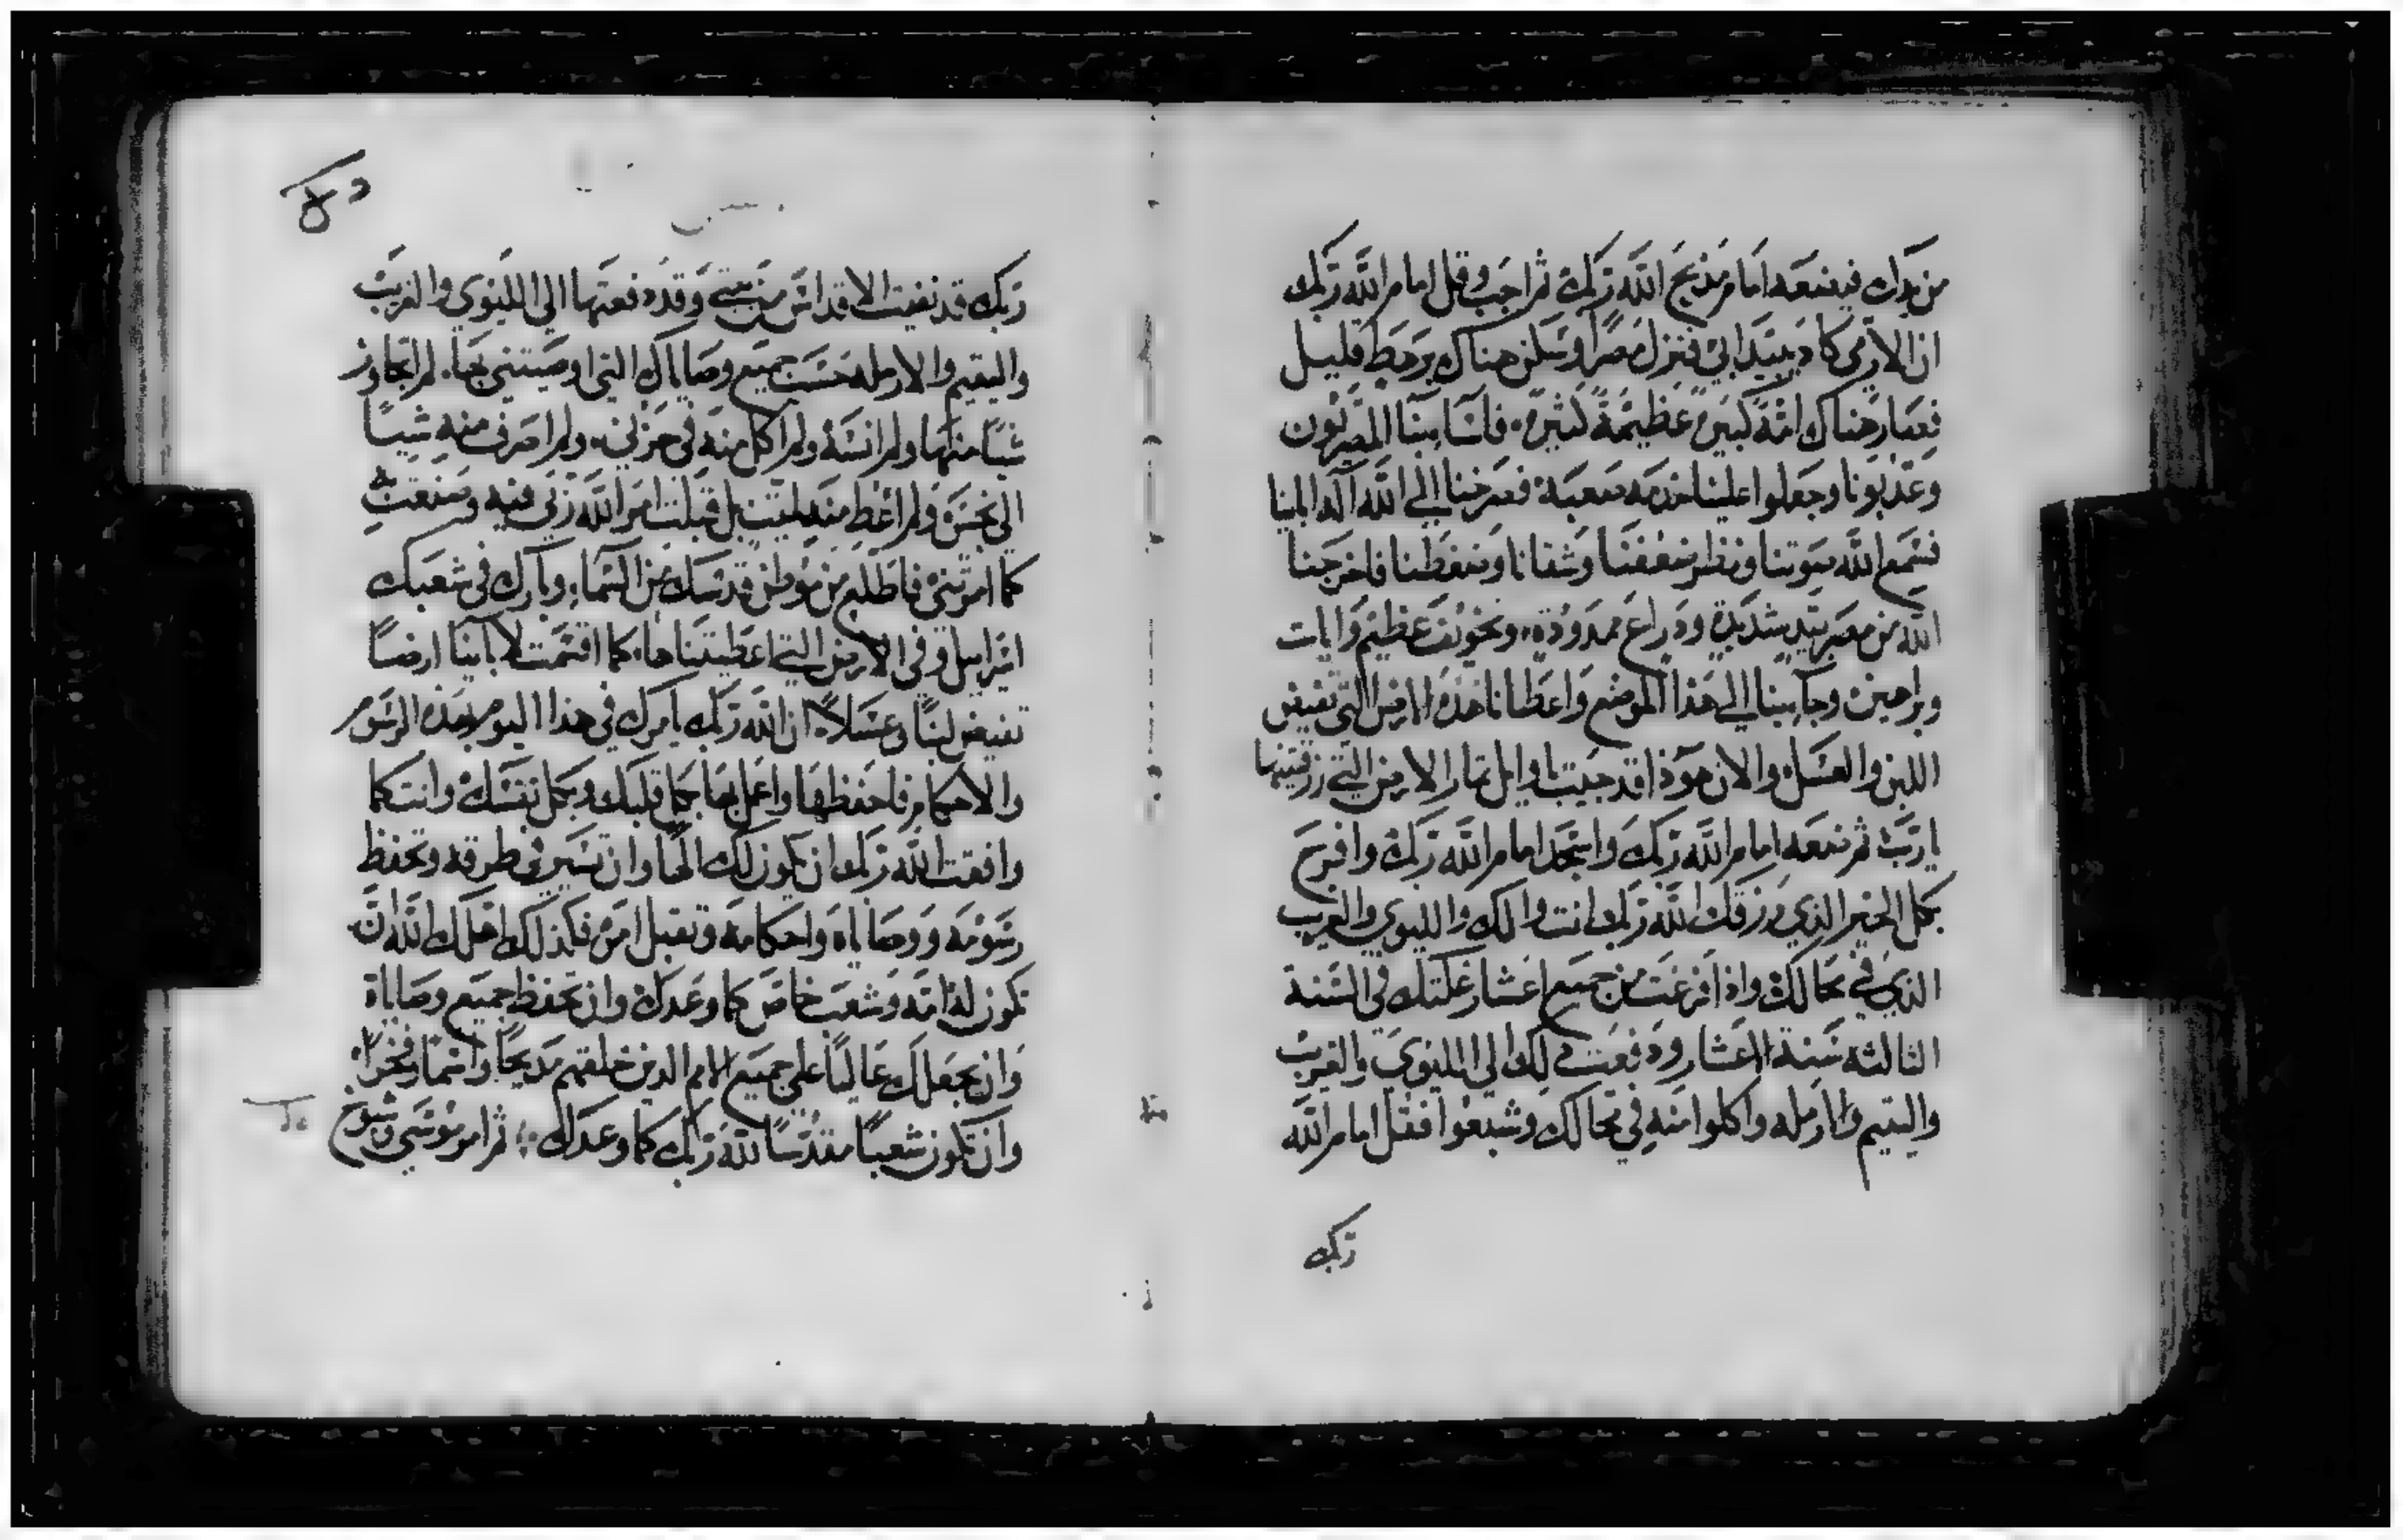 من يدك فيضعه امام مذبح الله ربك ثم اجب وقل امام الله ربك
ان الارمى كاد يبيد ابي فنزل مصرا وسكن هناك برهط قليل
فصار هناك امة كبيرة عظيمة كثيرة. فاسا بنا المصريون
وعذبونا وجعلوا علينا خدمه صعبة فصرخنا الي الله اله ابائنا
فسمع الله صوتنا ونظر ضعفنا وشقانا وضغطنا فاخرجنا
الله من مصر بيد شديدة وذراع ممدودة. وبخوف عظيم وايات
وبراهين وجا بنا الي هذا الموضع واعطانا هذه الارض التي تفيض
اللبن والعسل والان هوذا قد جيت باوايل ثمار الارض التي رزقتنيها
يا رب ثم ضعه امام الله ربك واسجد امام الله ربك وافرح
بكل الخير الذي رزقك الله ربك انت والك والليوي والغريب
الذي في محالك واذا فرغت من جميع اعشار غلتك في السنة
الثالثه سنة الاعشار ودفعت ذلك الي الليوي والغريب
واليتيم والارمله واكلوا منه في محالك وشبعوا فقل امام الله
ربك
ربك قد نفيت الاقداس من بيتي وقد دفعتها الي الليوي والغريب
واليتيم والارمله حسب جميع وصاياك التي اوصيتني بها. لم اتجاوز
شيا منها ولم انسه ولم اكل منه في حزني. ولم اصرف منه شيا
الى نجس ولم اعط منه لميت بل قبلت امر الله ربي فيه وصنعت
كما امرتني فاطلع من موطن قدسك من السماء وبارك في شعبك
اسراييل وفي الارض التي اعطيتناها. كما اقسمت لابائنا ارضا
تفيض لبنا وعسلا. ان الله ربك يامرك في هذا اليوم بهذه الرسوم
والاحكام فاحفظها واعمل بها بكل قلبك وبكل نفسك وانت كما
وافقت الله ربك ان يكون لك الها وان تسير في طرقه وتحفظ
رسومه ووصاياه واحكامه وتقبل امره فكذلك احلك الله ان
تكون له امة وشعب خاص كما وعدك وان تحفظ جميع وصاياه
وان يجعلك عاليا على جميع الامم الذين خلقهم مديحا واسما وفخرا.
وان تكون شعبا مقدسا لله ربك كما وعدك. ثم امر موسي وشيوخ